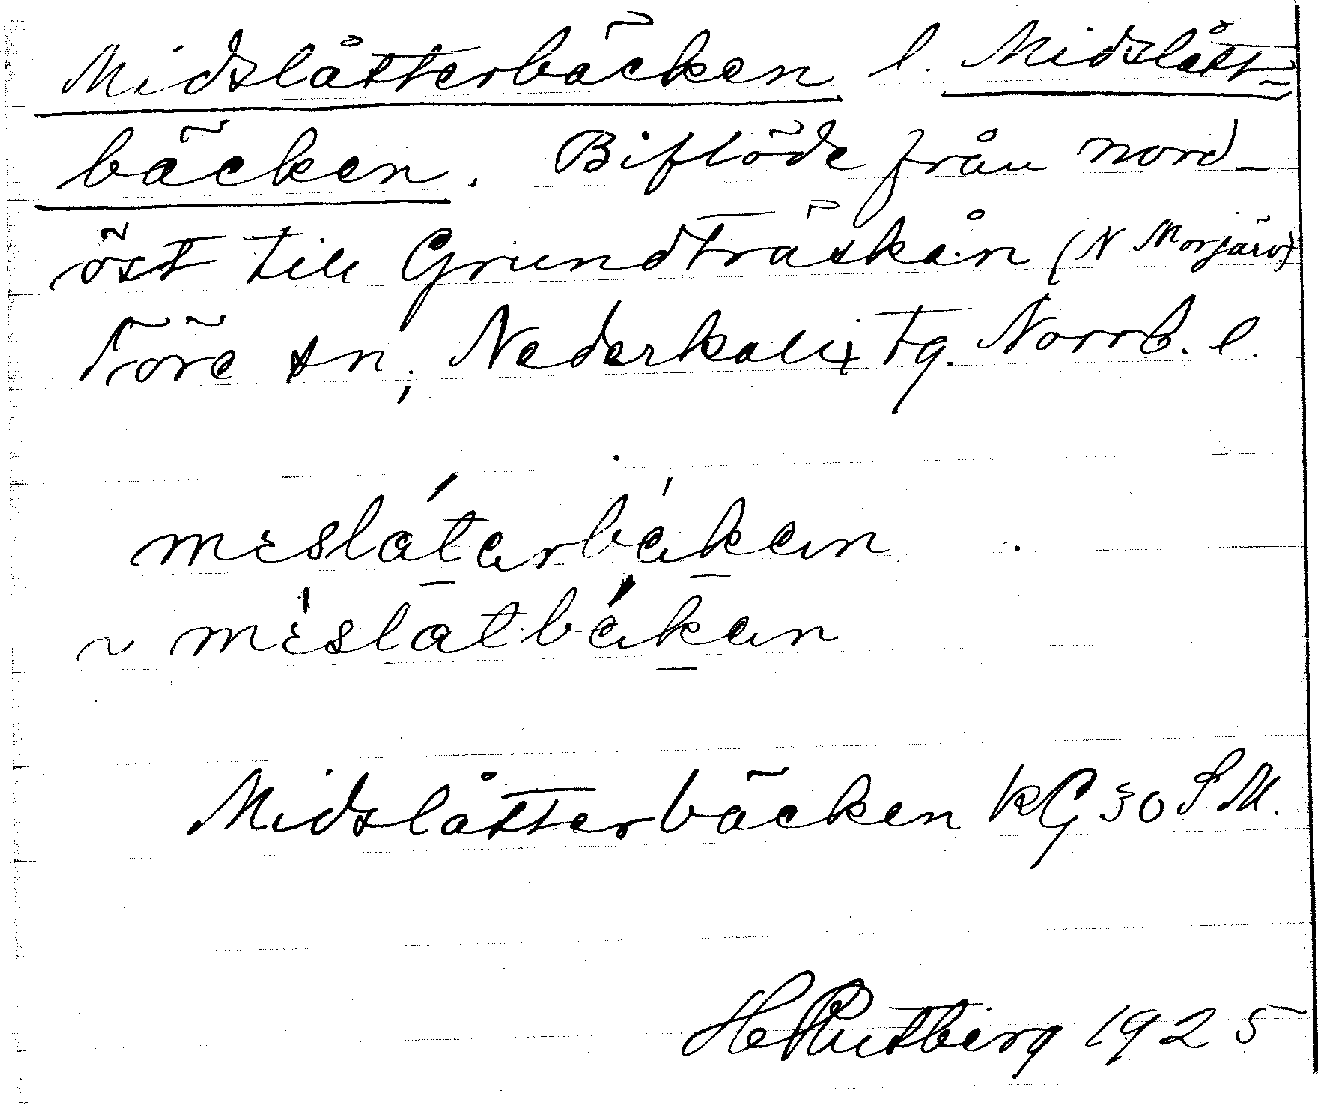 Midslåtterbäcken l. Midslått-
bäcken. Biflöde från nord-
öst till Grundträskån (N Morjärv)
Töre sn, Nederkalix tg. Norrb. l.
mɛslåtarbäkan
~ mɛslåtbäkan
Midslåtterbäcken kG 30 SM.
HRutberg 1925